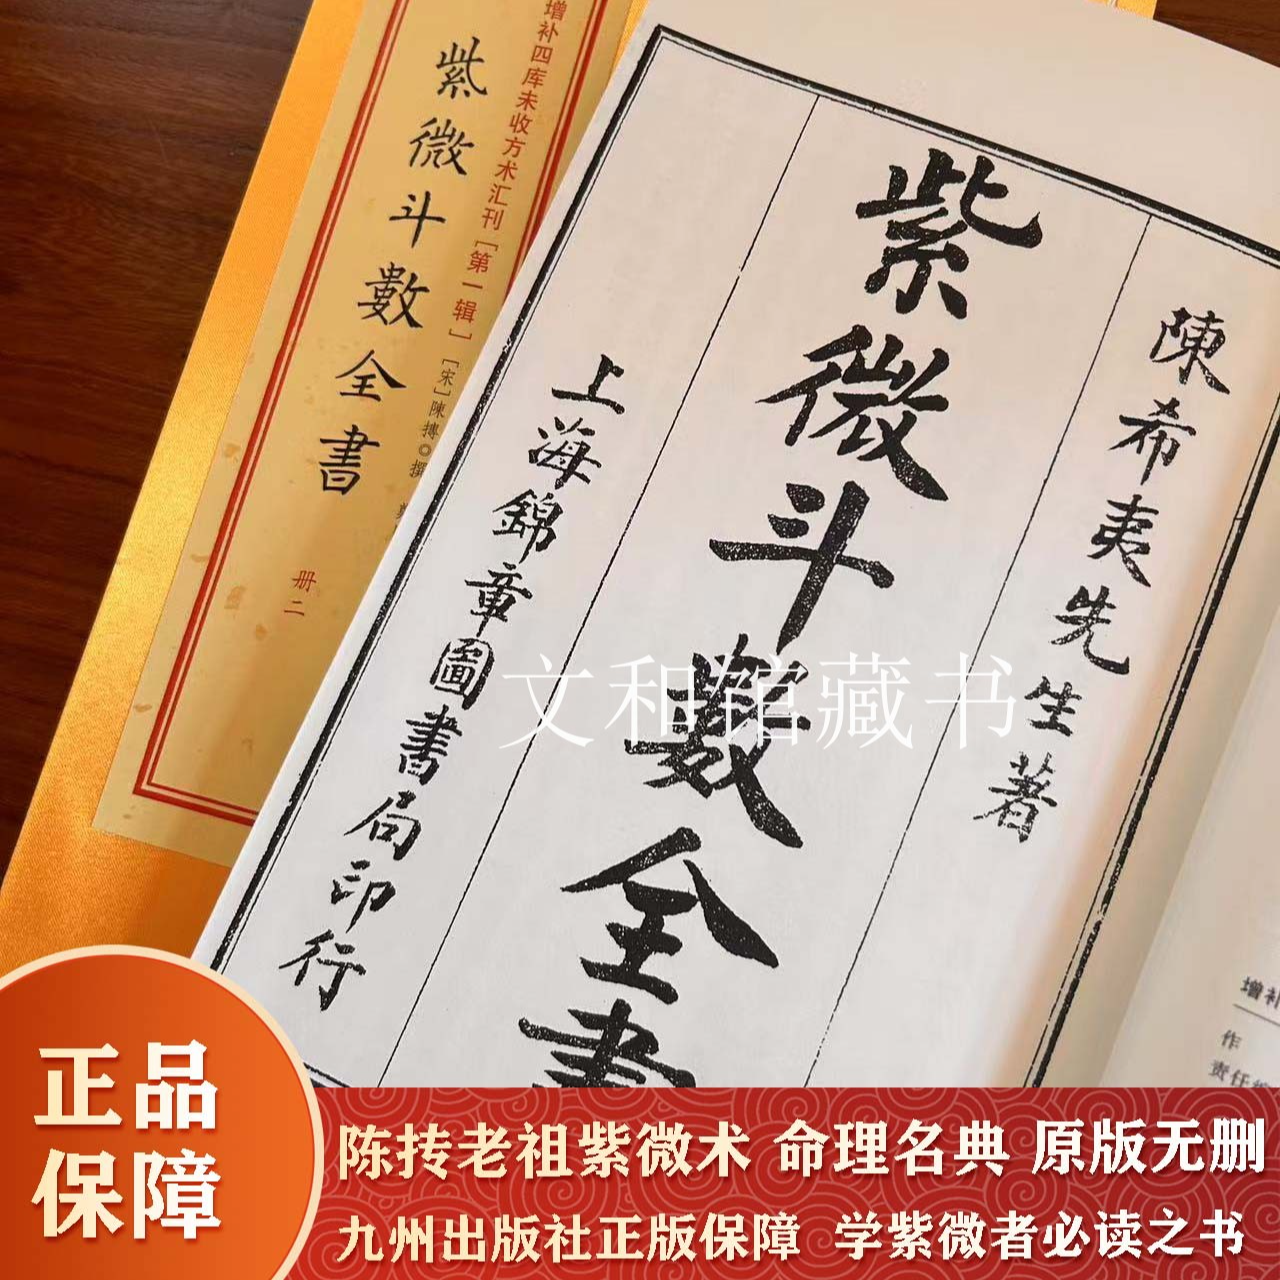 增补四库未收方术汇刊［第一辑］
紫微斗數全書
［宋］陳摶◎撰
册二
陳希夷先生著
紫微斗數全書
上海錦章圖書局印行
文和馆藏书
增补
作
责任编
正品
保障
陈抟老祖紫微术 命理名典 原版无删
九州出版社正版保障 学紫微者必读之书